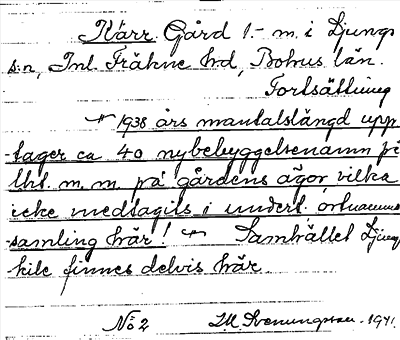 Kärr. Gård 1.- m. i Ljungs
s:n, Inl. Fräkne hd, Bohus län.
Fortsättning
1938 års mantalslängd upp-
tager ca 40 nybebyggelsenamn på
lht. m. m. på gårdens ägor vilka
icke medtagits i undert. ortnamns-
samling här! Samhället Ljungs-
kile finnes delvis här.
No 2 1941.